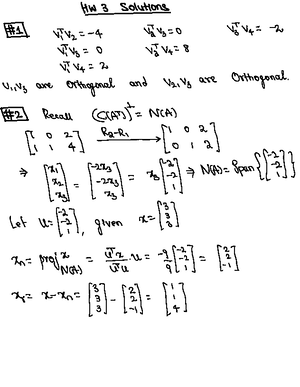 HW 3 Solutions
#1. V₁ᵀV₂ = -4 V₂ᵀV₃ = 0 V₃ᵀV₄ = -2
V₁ᵀV₃ = 0 V₂ᵀV₄ = 8
V₁ᵀV₄ = 2
V₁,V₃ are Orthogonal and V₂,V₃ are Orthogonal.
#2. Recall (C(Aᵀ))^⊥ = N(A)
[1 0 2; 1 1 4] R₂-R₁ → [1 0 2; 0 1 2]
⇒ [x₁; x₂; x₃] = [-2x₃; -2x₃; x₃] = x₃ [-2; -2; 1] ⇒ N(A) = Span {[-2; -2; 1]}
Let u = [-2; -2; 1], given x = [3; 3; 3]
xₙ = proj x N(A) = uᵀx / uᵀu · u = -9/9 [-2; -2; 1] = [2; 2; -1]
xᵣ = x - xₙ = [3; 3; 3] - [2; 2; -1] = [1; 1; 4]